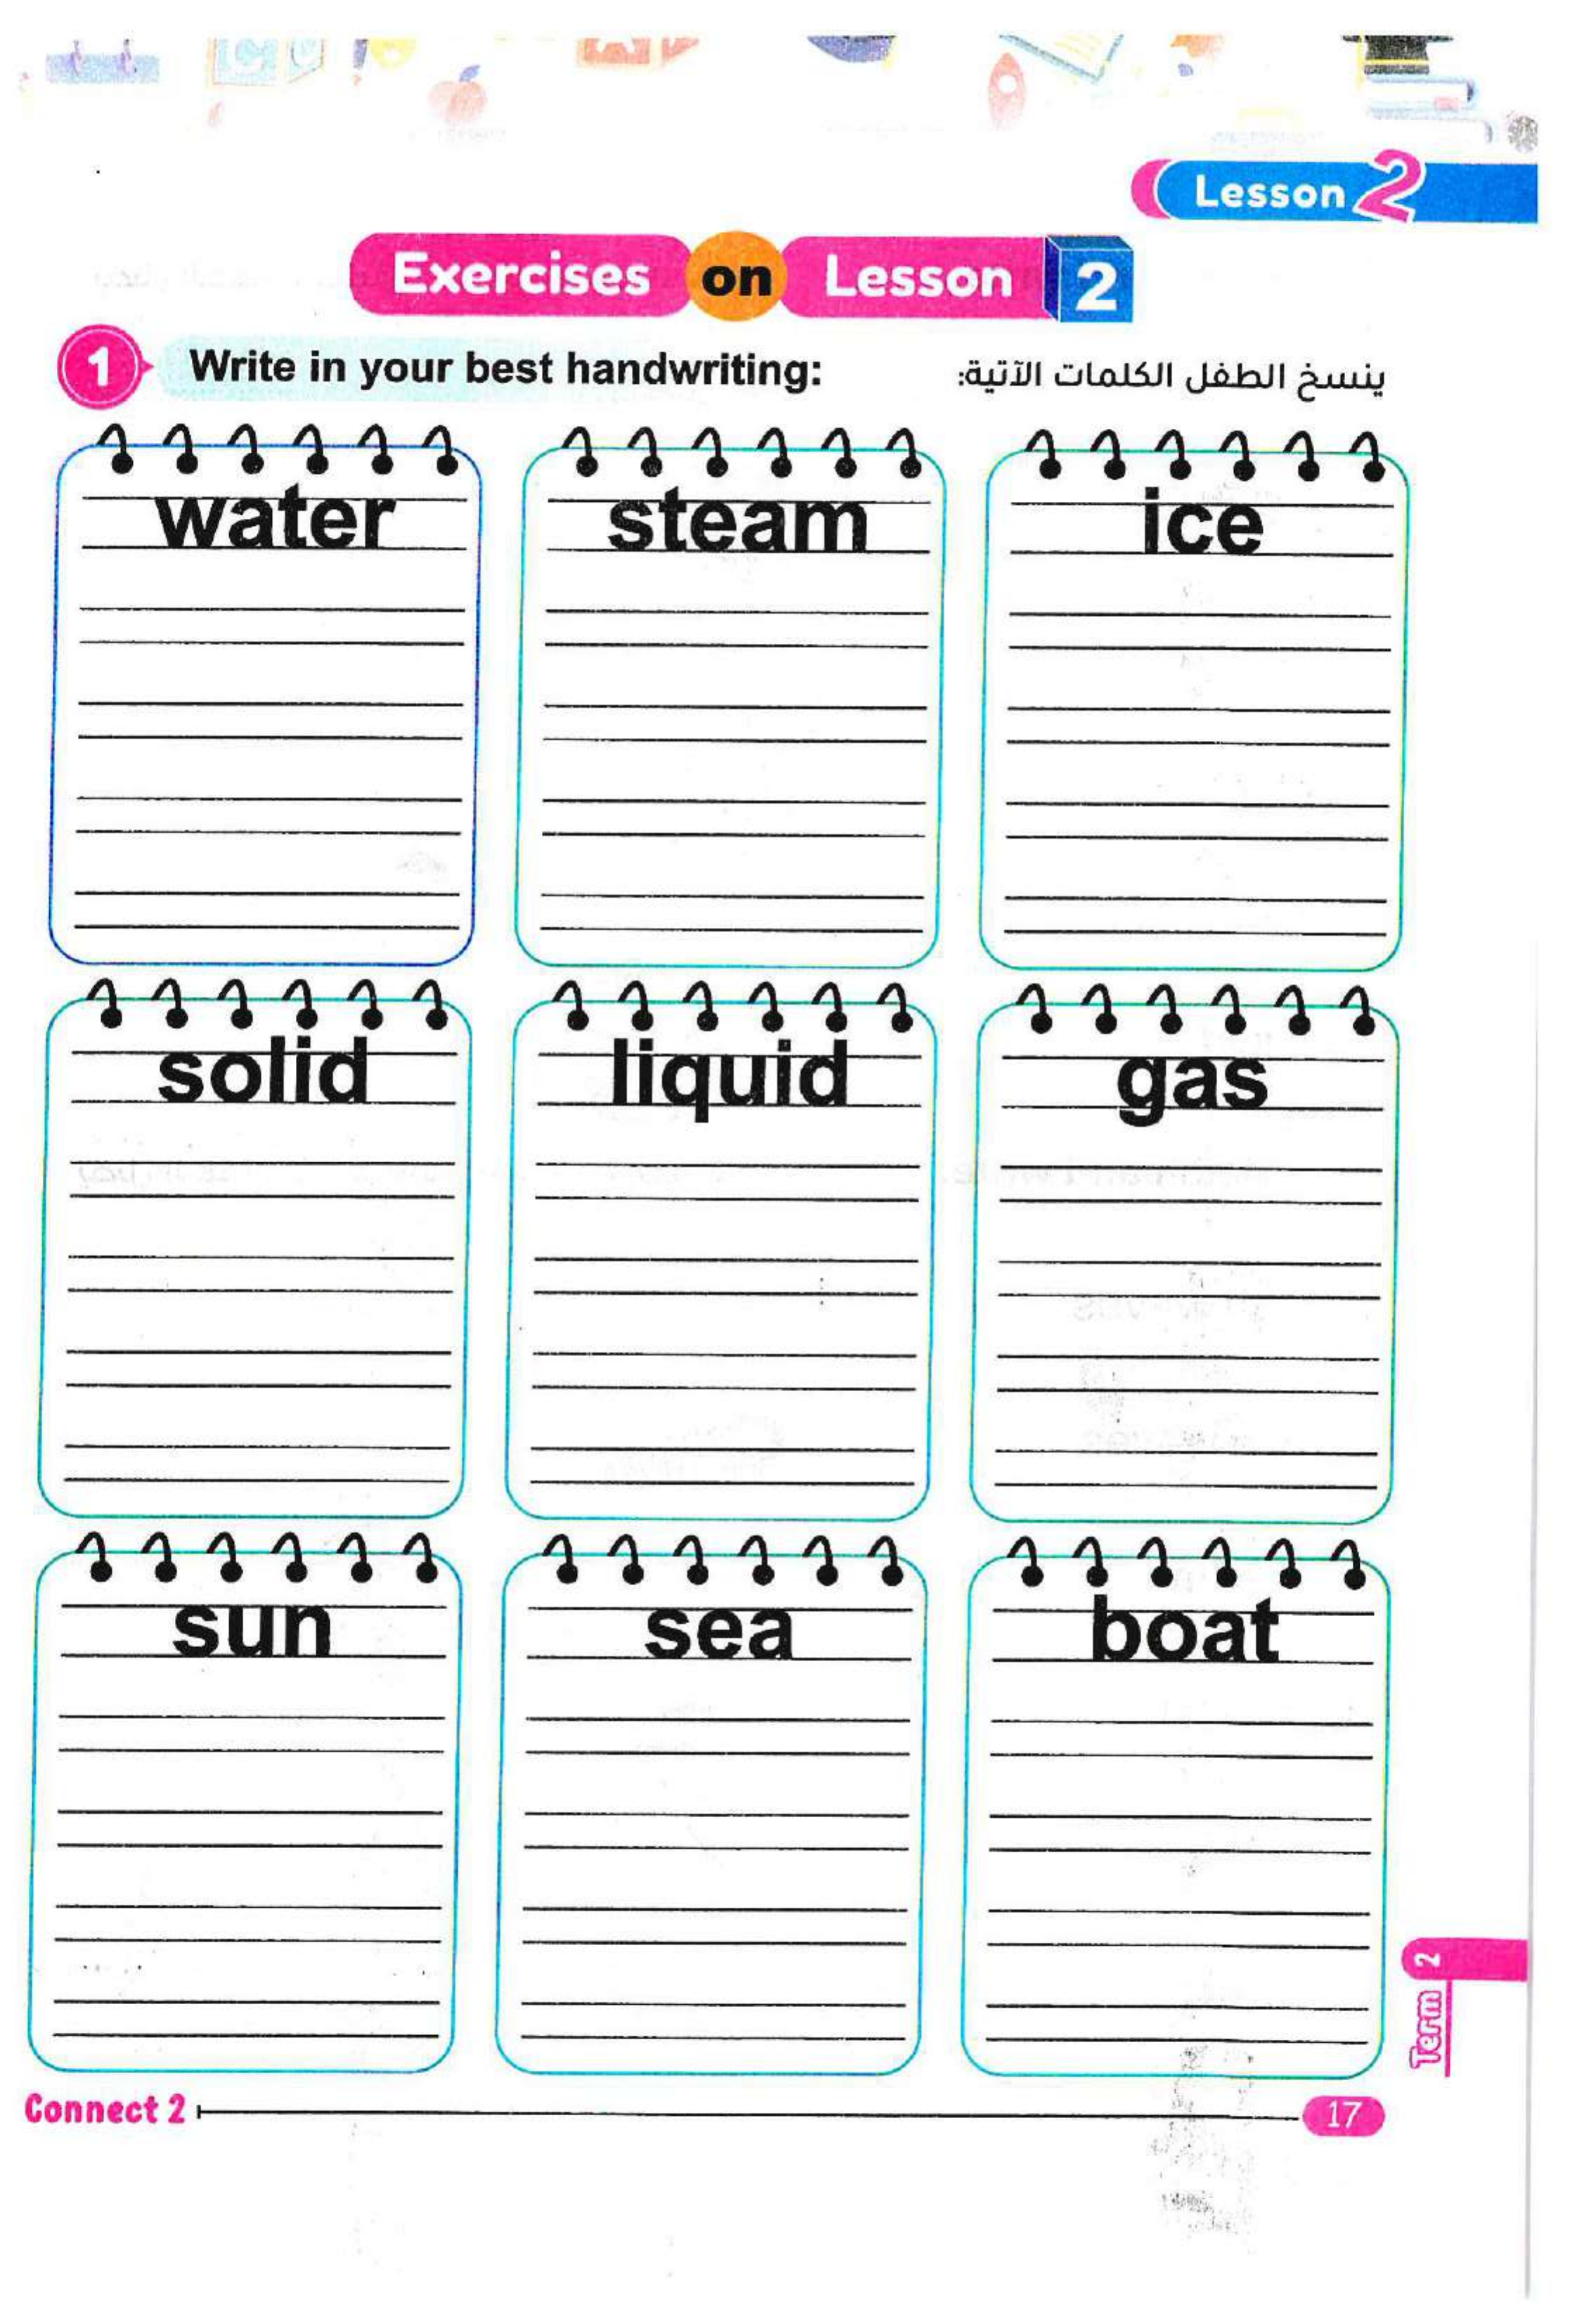 Lesson 2
Exercises on Lesson 2
1 Write in your best handwriting:
ينسخ الطفل الكلمات الآتية:
water steam ice
solid liquid gas
sun sea boat
Term 2
Connect 2
17